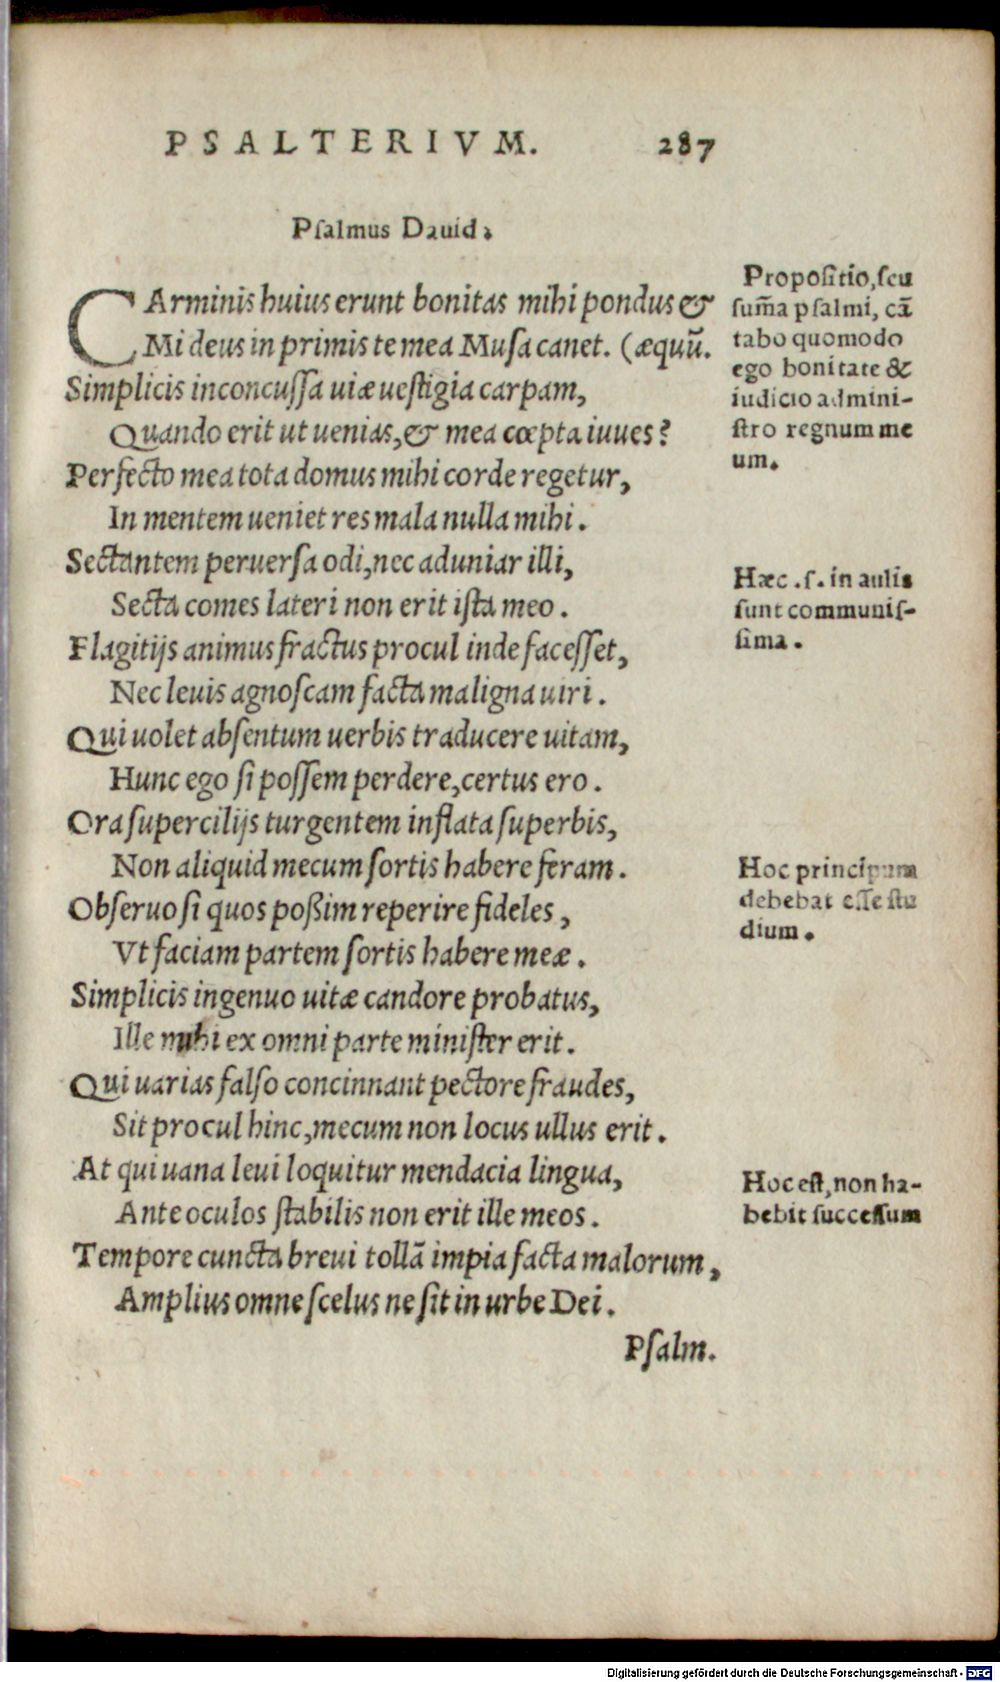 PSALTERIVM. 287
Pſalmus Dauid.
CArminis huius erunt bonitas mihi pondus &
Mi deus in primis te mea Muſa canet. (æquū.
Simplicis inconcuſſa uiæ ueſtigia carpam,
Quando erit ut uenias, & mea cœpta iuues?
Perfecto mea tota domus mihi corde regetur,
In mentem ueniet res mala nulla mihi.
Sectantem peruerſa odi, nec aduniar illi,
Secta comes lateri non erit iſta meo.
Flagitijs animus fractus procul inde faceſſet,
Nec leuis agnoſcam facta maligna uiri.
Qui uolet abſentum uerbis traducere uitam,
Hunc ego ſi poſſem perdere, certus ero.
Ora ſupercilijs turgentem inflata ſuperbis,
Non aliquid mecum ſortis habere feram.
Obſeruo ſi quos poßim reperire fideles,
Vt faciam partem ſortis habere meæ.
Simplicis ingenuo uitæ candore probatus,
Ille mihi ex omni parte miniſter erit.
Qui uarias falſo concinnant pectore fraudes,
Sit procul hinc, mecum non locus ullus erit.
At qui uana leui loquitur mendacia lingua,
Ante oculos ſtabilis non erit ille meos.
Tempore cuncta breui tollā impia facta malorum,
Amplius omne ſcelus ne ſit in urbe Dei.
Pſalm.
Propoſitio, ſeu
ſum̄a pſalmi, cā
tabo quomodo
ego bonitate &
iudicio admini-
ſtro regnum me
um.
Hæc .ſ. in aulis
ſunt communiſ-
ſima.
Hoc principum
debebat eſſe ſtu
dium.
Hoc eſt, non ha-
bebit ſucceſſum
Digitalisierung gefördert durch die Deutsche Forschungsgemeinschaft - DFG